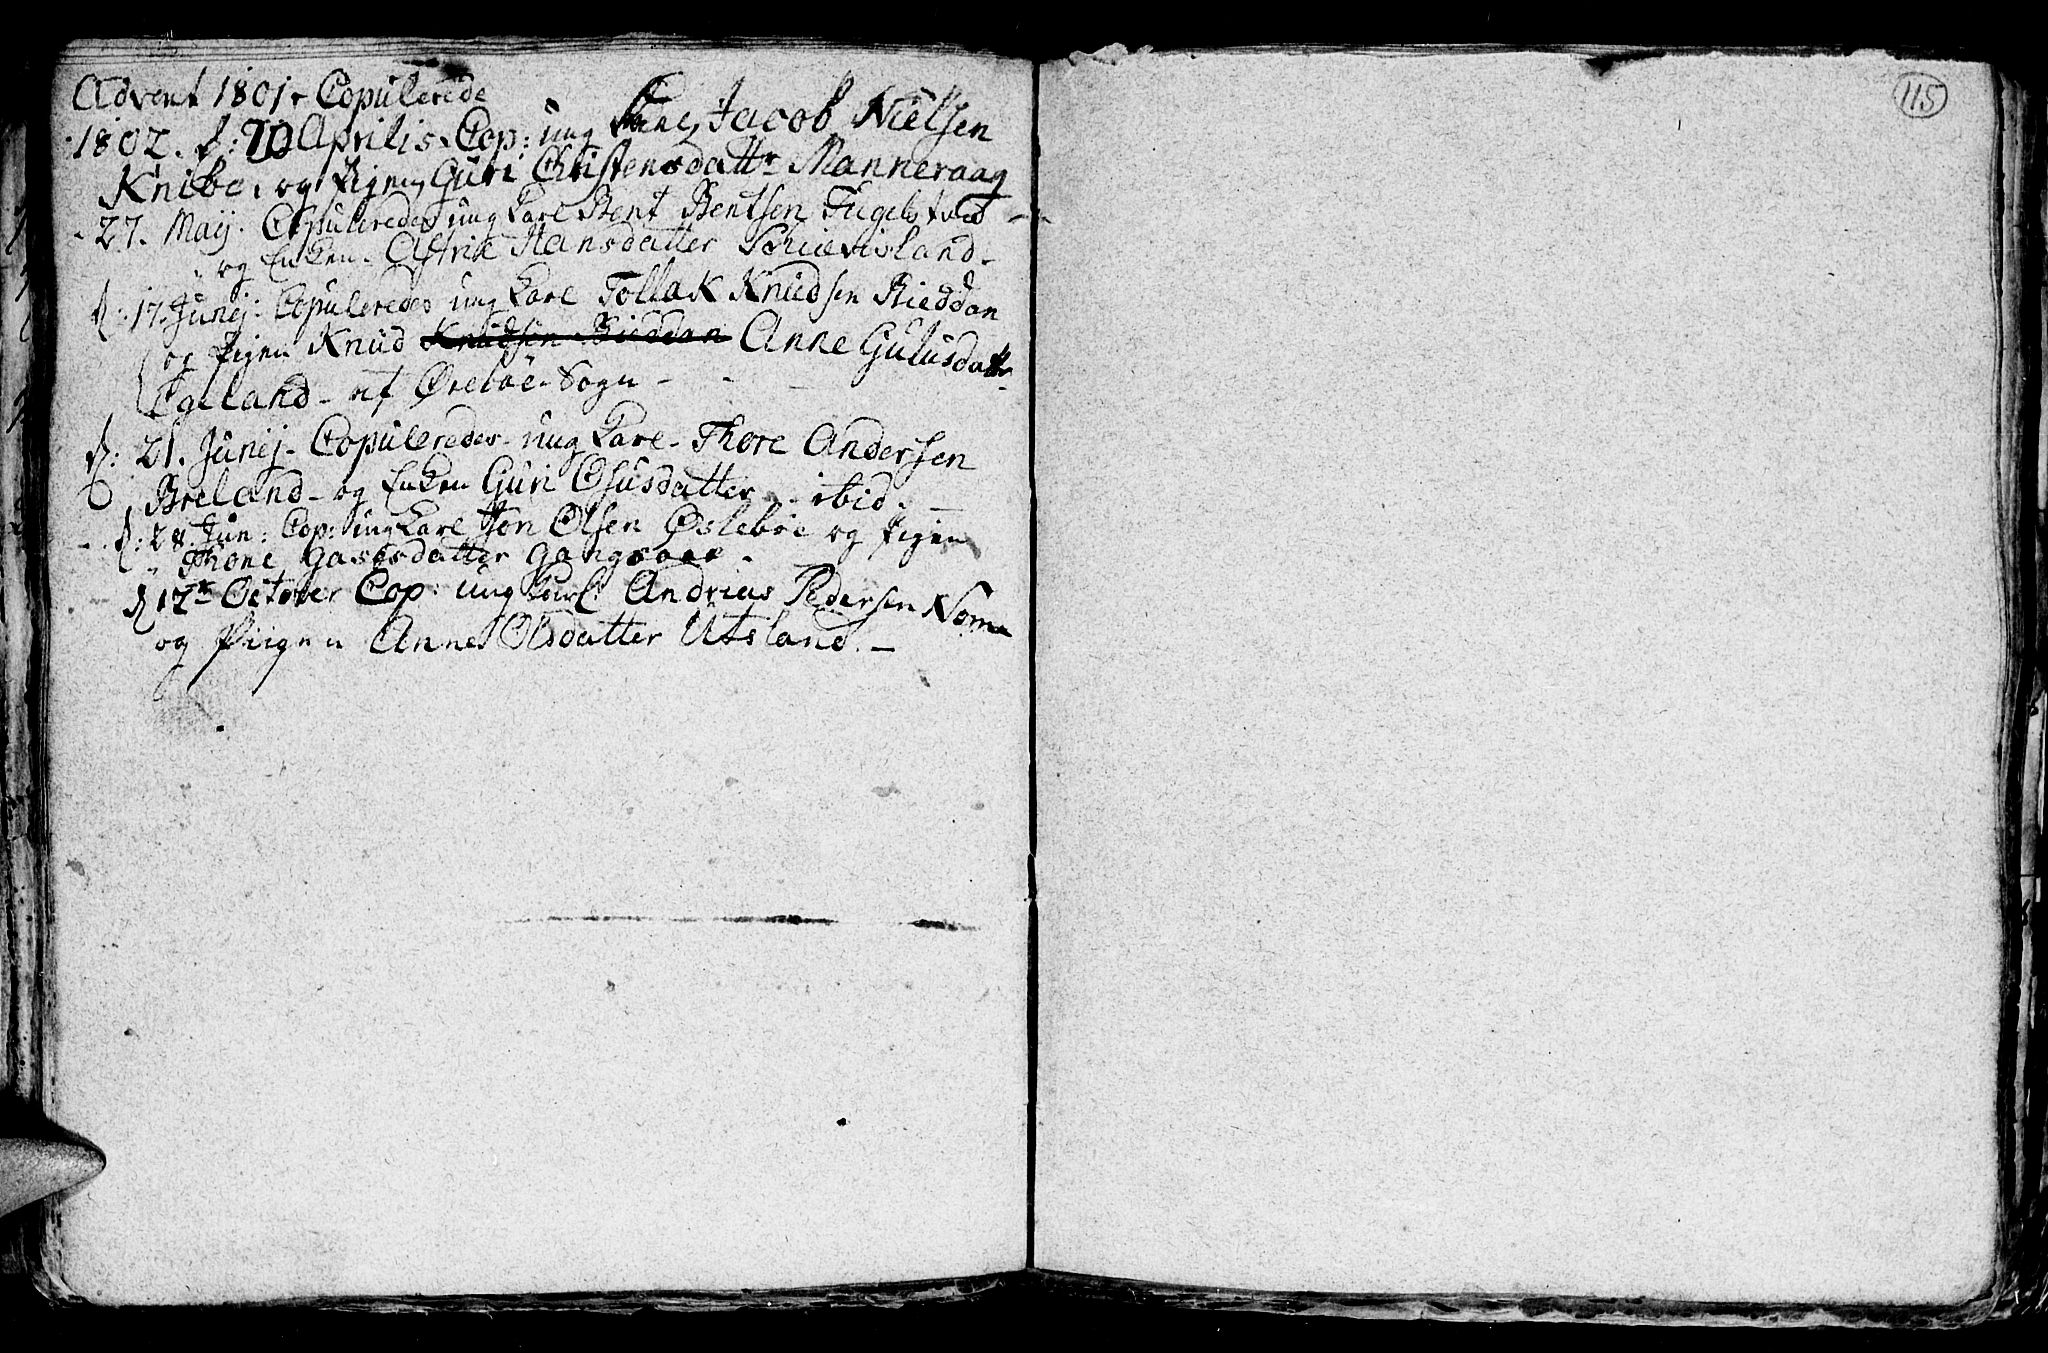 Advent 1801. Copulerede
1802. d: 20 Aprilis. Cop: ung Karl, Jacob Nielsen
Knibe, og Pigen, Guri Christensdattr Manneraag
- 27. Maij. Copuleredes ung Karl Bent Bentsen Fugelstved
og Enken. Astrie Hansdatter Schievisland -
d: 17. Junij: Copuleredes ung Karl Tollak Knudsen Rieddan
og Pigen Knud Knudsen Rieddan Anne Gulusdattr
Egeland - af Øreböe Sogn -
d: 21. Junij - Copuleredes - ung Karl - Thore Andersen
Breland - og Enken Guri Osusdatter - ibid. -
d: 28. Jun: Cop: ung Karl Jon Olsen Øslebøe og Pigen
Thone Gasesdatter
d 17de October Cop: ung Karl Andrias Pedersen Nome
og Piigen Anne Olsdatter Utsland. -
115